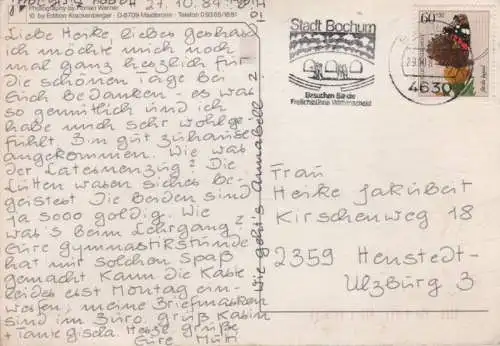 Photography by Florian Werner
10 by Edition Krackenberger · D-8709 Mausbronn · Telefon
27. 10. 84
Liebe Heike, liebes
ich möchte mich noch
mal ganz herzlich für
die schönen Tage bei
Euch bedanken - es was
so gemütlich und ich
habe mich sehr wohlge-
fühlt. Bin gut zuhause
angekommen. Wie was
der Latesnenzug? Die
Lütten wasen siches be-
geistest Die beiden sind
ja sooo goldig. Wie
was's beim Lehrgang?
Eure Gymnastikstunde
hat mis solchen Spaß
gemacht Kann die Kaste
leides esst Montag ein-
wesfen, meine Briefmasken
sind im Büro. Gruß Kasin
+ Tante Gisela Hesze Grüße
Eure Muki
Wie geht's Annabell?
Stadt Bochum
Besuchen Sie die
Freilichtbühne Wattenscheid
60
4630
Frau
Heike Jakubeit
Kirschenweg 18
2359 Henstedt-
Ulzburg 3